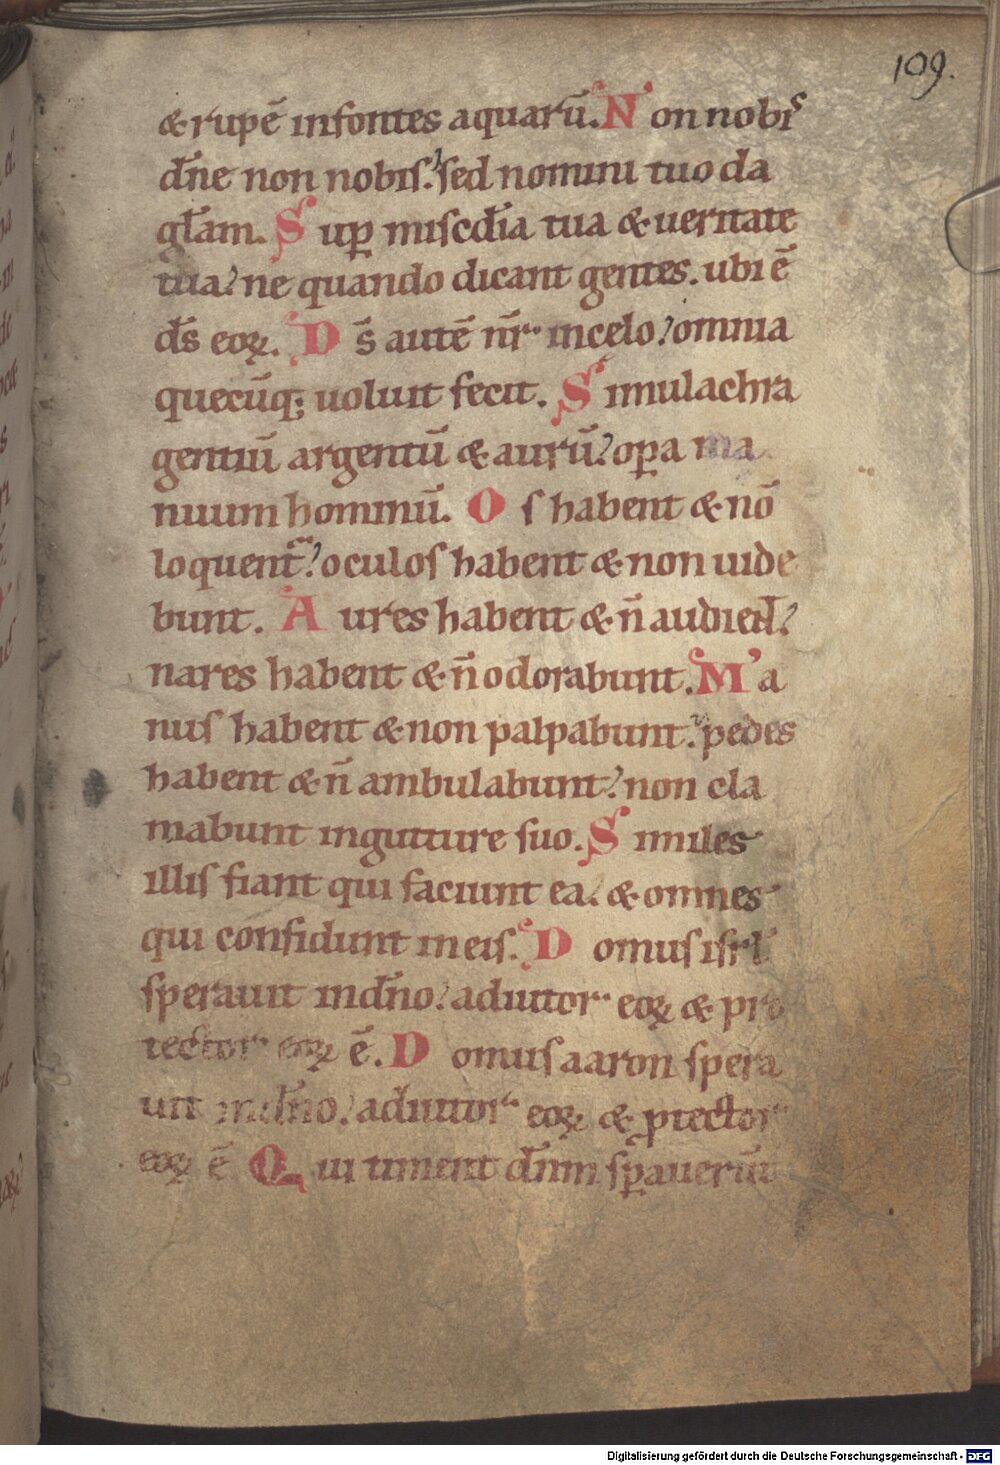 109.
& rupē infontes aquarū. Non nobis
dn̄e non nobis. sed nomini tuo da
gl̄am. Sup̲ misc̄dia tua & ueritate
tua? ne quando dicant gentes. ubi ē
d̄s eoꝝ. D s̄ autē nr̄ incelo? omnia
quecūq; uoluit fecit. Simulachra
gentiū argentū & aurū? oꝑa ma
nuum hominū. Os habent & nō
loquent? oculos habent & non uide
bunt. Aures habent & n̄ audient?
nares habent & n̄ odorabunt. Ma
nus habent & non palpabunt. pedes
habent & n̄ ambulabunt? non cla
mabunt ingutture suo. Similes
illis fiant qui faciunt ea. & omnes
qui confidunt ineis. Domus isrl̄
sperauit indn̄o? adiutor eoꝝ & pro
tector eoꝝ ē. Domus aaron spera
uit indn̄o? adiutor eoꝝ & ꝓtector
eoꝝ ē Qui timent dn̄m sꝑauerūt
Digitalisierung gefördert durch die Deutsche Forschungsgemeinschaft - DFG